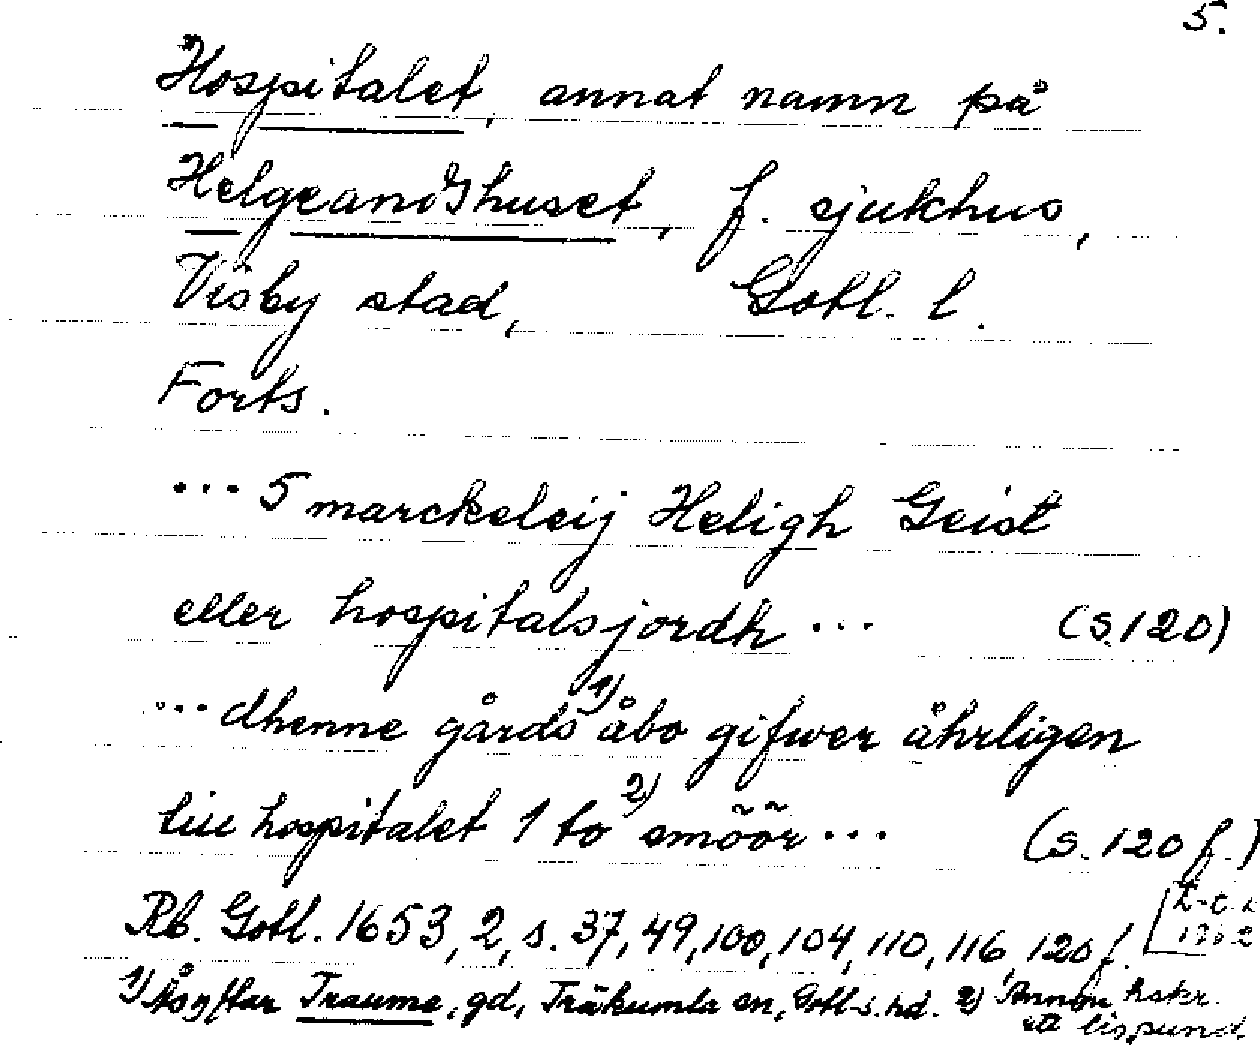 5.
Hospitalet, annat namn på
Helgeandshuset, f. sjukhus,
Visby stad, Gotl. l.
Forts.
... 5 marckeleij Heligh Geist
eller hospitalsjordh ... (s.120)
... dhenne gårds 1) åbo gifwer åhrligen
till hospitalet 1 to 2) smöör ... (s.120 f.)
Rb. Gotl. 1653, 2, s. 37, 49, 100, 104, 110, 116, 120 f.
1) Åsyftar Traume, gd, Träkumla sn, Gotl. s. hd. 2) Annan hskr.
ett lispund.